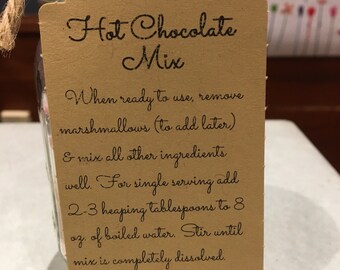 Hot Chocolate
Mix
When ready to use, remove
marshmallows (to add later)
& mix all other ingredients
well. For single serving add
2-3 heaping tablespoons to 8
oz. of boiled water. Stir until
mix is completely dissolved.